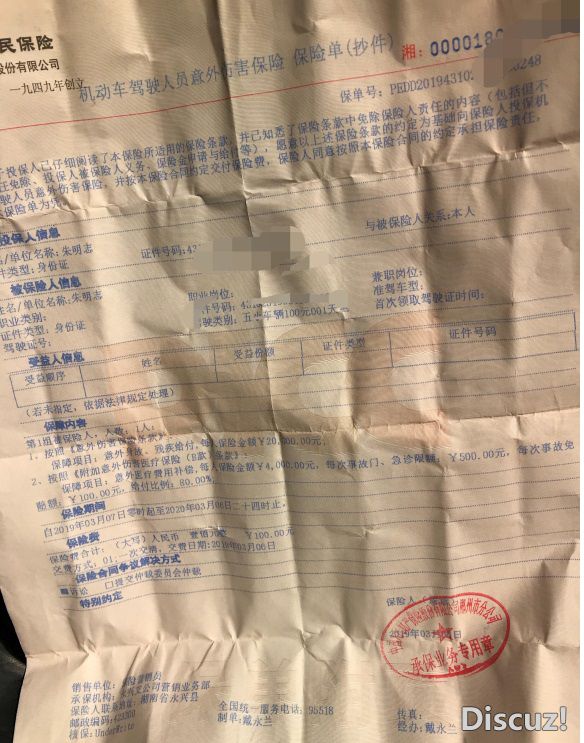 民保险
股份有限公司
一九四九年创立
机动车驾驶人员意外伤害保险 保险单(抄件)
湘:
保单号: PEDD20194310
投保人已仔细阅读了本保险所适用的保险条款，并已知悉了保险条款中免除保险人责任的内容（包括但不
投保人被保险人义务、保险金申请与给付等），愿意以上述保险条款的约定为基础向保险人投保机
驶人员意外伤害保险，并按本保险合同约定交付保险费，保险人同意按照本保险合同的约定承担保险责任，
投保人信息
名/单位名称:朱明志
证件号码:
与被保险人关系:本人
件类型:身份证
被保险人信息
姓名/单位名称:朱明志
职业岗位:
兼职岗位:
职业类别:
件号码:
准驾车型:
证件类型:身份证
首次领取驾驶证时间:
驾驶证号:
受益人信息
受益顺序 姓名 受益份额 证件类型 证件号码
(若未指定，依据法律规定处理)
保障内容
第1组被保险人，人数: 1人:
1、按照《意外伤害保险条款》:
保障项目: 意外身故、残疾给付,每人保险金额￥20,000.00元,
2、按照《附加意外伤害医疗保险（B款）条款》:
保障项目: 意外医疗费用补偿,每人保险金额￥4,000.00元, 每次事故门、急诊限额: ￥500.00元, 每次事故免
赔额: ￥100.00元, 给付比例: 80.00%,
保险期间
自2019年03月07日零时起至2020年03月06日二十四时止。
保险费
保险费合计: (大写)人民币 壹佰元整 ￥100.00元
交费方式: 01.一次交清, 交费日期:2019年03月06日
保险合同争议解决方式
■诉讼 口提交仲裁委员会仲裁
特别约定
保险人
承保业务专用章
销售单位:
承保机构:
营销业务部
保险人联系地址: 湖南省永兴县
邮政编码:423300
全国统一服务电话: 95518
传真:
核保:UnderWrite
制单: 戴永兰
经办: 戴永兰
Discuz!